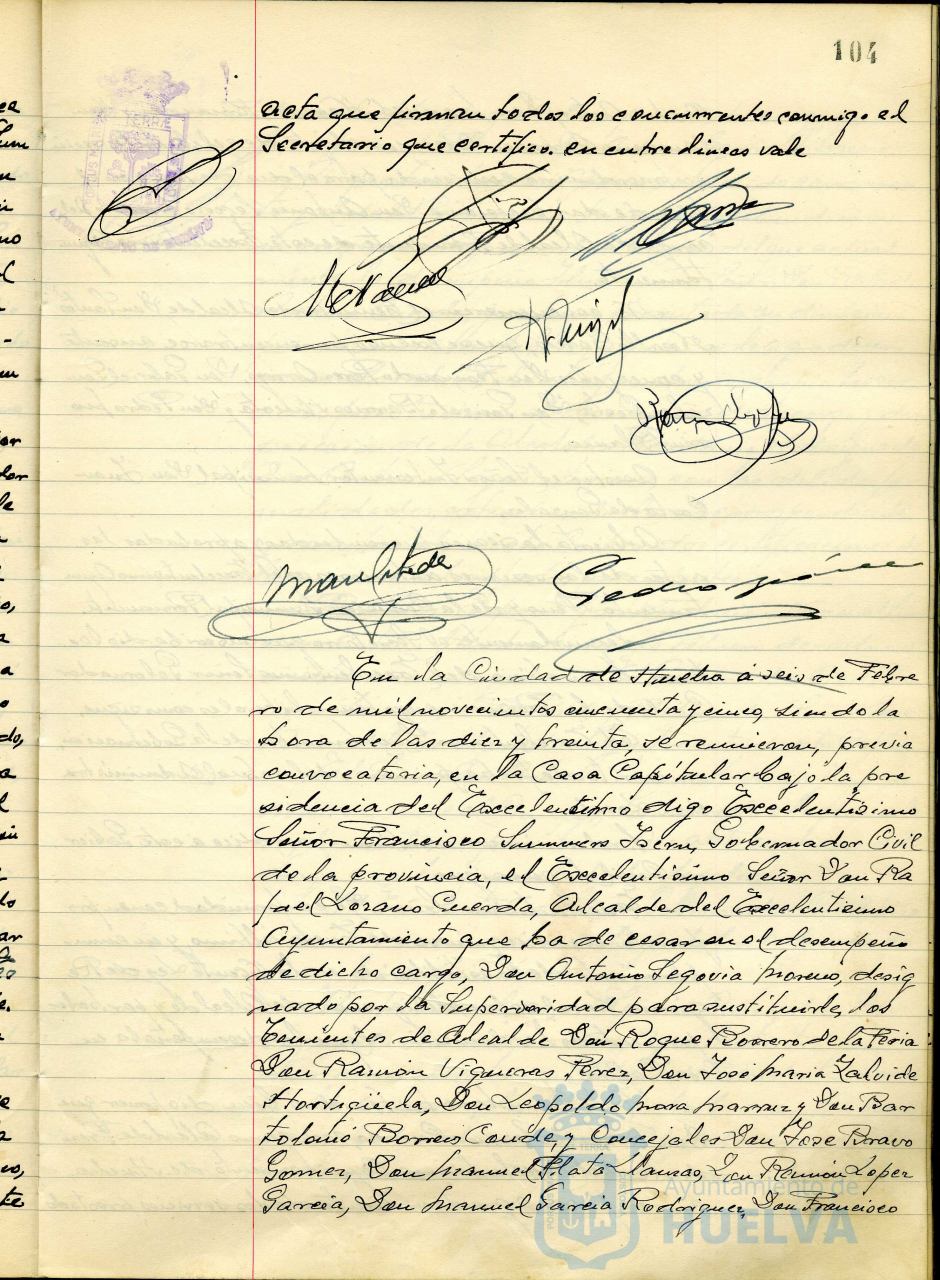 104
acta que firman todos los concurrentes conmigo el
Secretario que certifico. en entre lineas vale
En la Ciudad de Huelva a seis de Febre
ro de mil novecientos cincuenta y cinco, siendo la
hora de las diez y treinta, se reunieron, previa
convocatoria, en la Casa Capitular bajo la pre
sidencia del Excelentisimo digo Excelentisimo
Señor Francisco Summers Isern, Gobernador Civil
de la provincia, el Excelentisimo Señor Don Ra
fael Lozano Cuerda, Alcalde del Excelentisimo
Ayuntamiento que ha de cesar en el desempeño
de dicho cargo, Don Antonio Segovia Moreno, desig
nado por la Superioridad para sustituirle, los
Tenientes de Alcalde Don Roque Borrero de la Feria
Don Ramón Vigueras Perez, Don Jose Maria Zalvide
Hortigüela, Don Leopoldo Mora y Don Bar
tolomé Borrero Conde, y Concejales Don Jose Bravo
Gomez, Don Manuel Plata, Don Ramón Lopez
Garcia, Don Manuel Garcia Rodriguez, Don Francisco
Ayuntamiento de
HUELVA